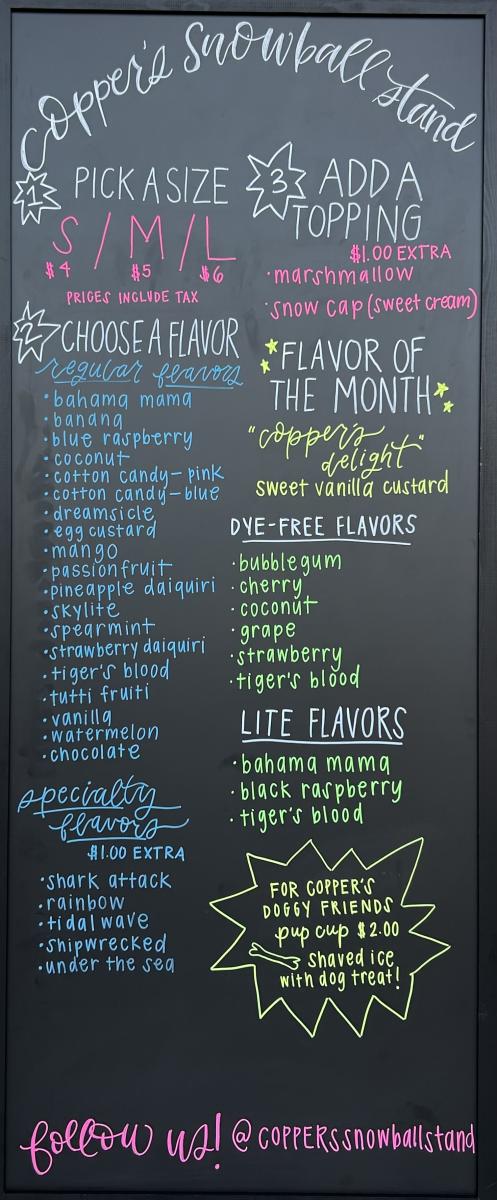 Copper's Snowball Stand
1 PICK A SIZE
S / M / L
$4 $5 $6
PRICES INCLUDE TAX
2 CHOOSE A FLAVOR
regular flavors
• bahama mama
• banana
• blue raspberry
• coconut
• cotton candy - pink
• cotton candy - blue
• dreamsicle
• egg custard
• mango
• passionfruit
• pineapple daiquiri
• skylite
• spearmint
• strawberry daiquiri
• tiger's blood
• tutti fruiti
• vanilla
• watermelon
• chocolate
specialty
flavors
$1.00 EXTRA
• shark attack
• rainbow
• tidal wave
• shipwrecked
• under the sea
3 ADD A
TOPPING
$1.00 EXTRA
• marshmallow
• snow cap (sweet cream)
FLAVOR OF
THE MONTH
"copper's
delight"
sweet vanilla custard
DYE-FREE FLAVORS
• bubblegum
• cherry
• coconut
• grape
• strawberry
• tiger's blood
LITE FLAVORS
• bahama mama
• black raspberry
• tiger's blood
FOR COPPER'S
DOGGY FRIENDS
pup cup $2.00
shaved ice
with dog treat!
follow us! @COPPERSsnowballstand